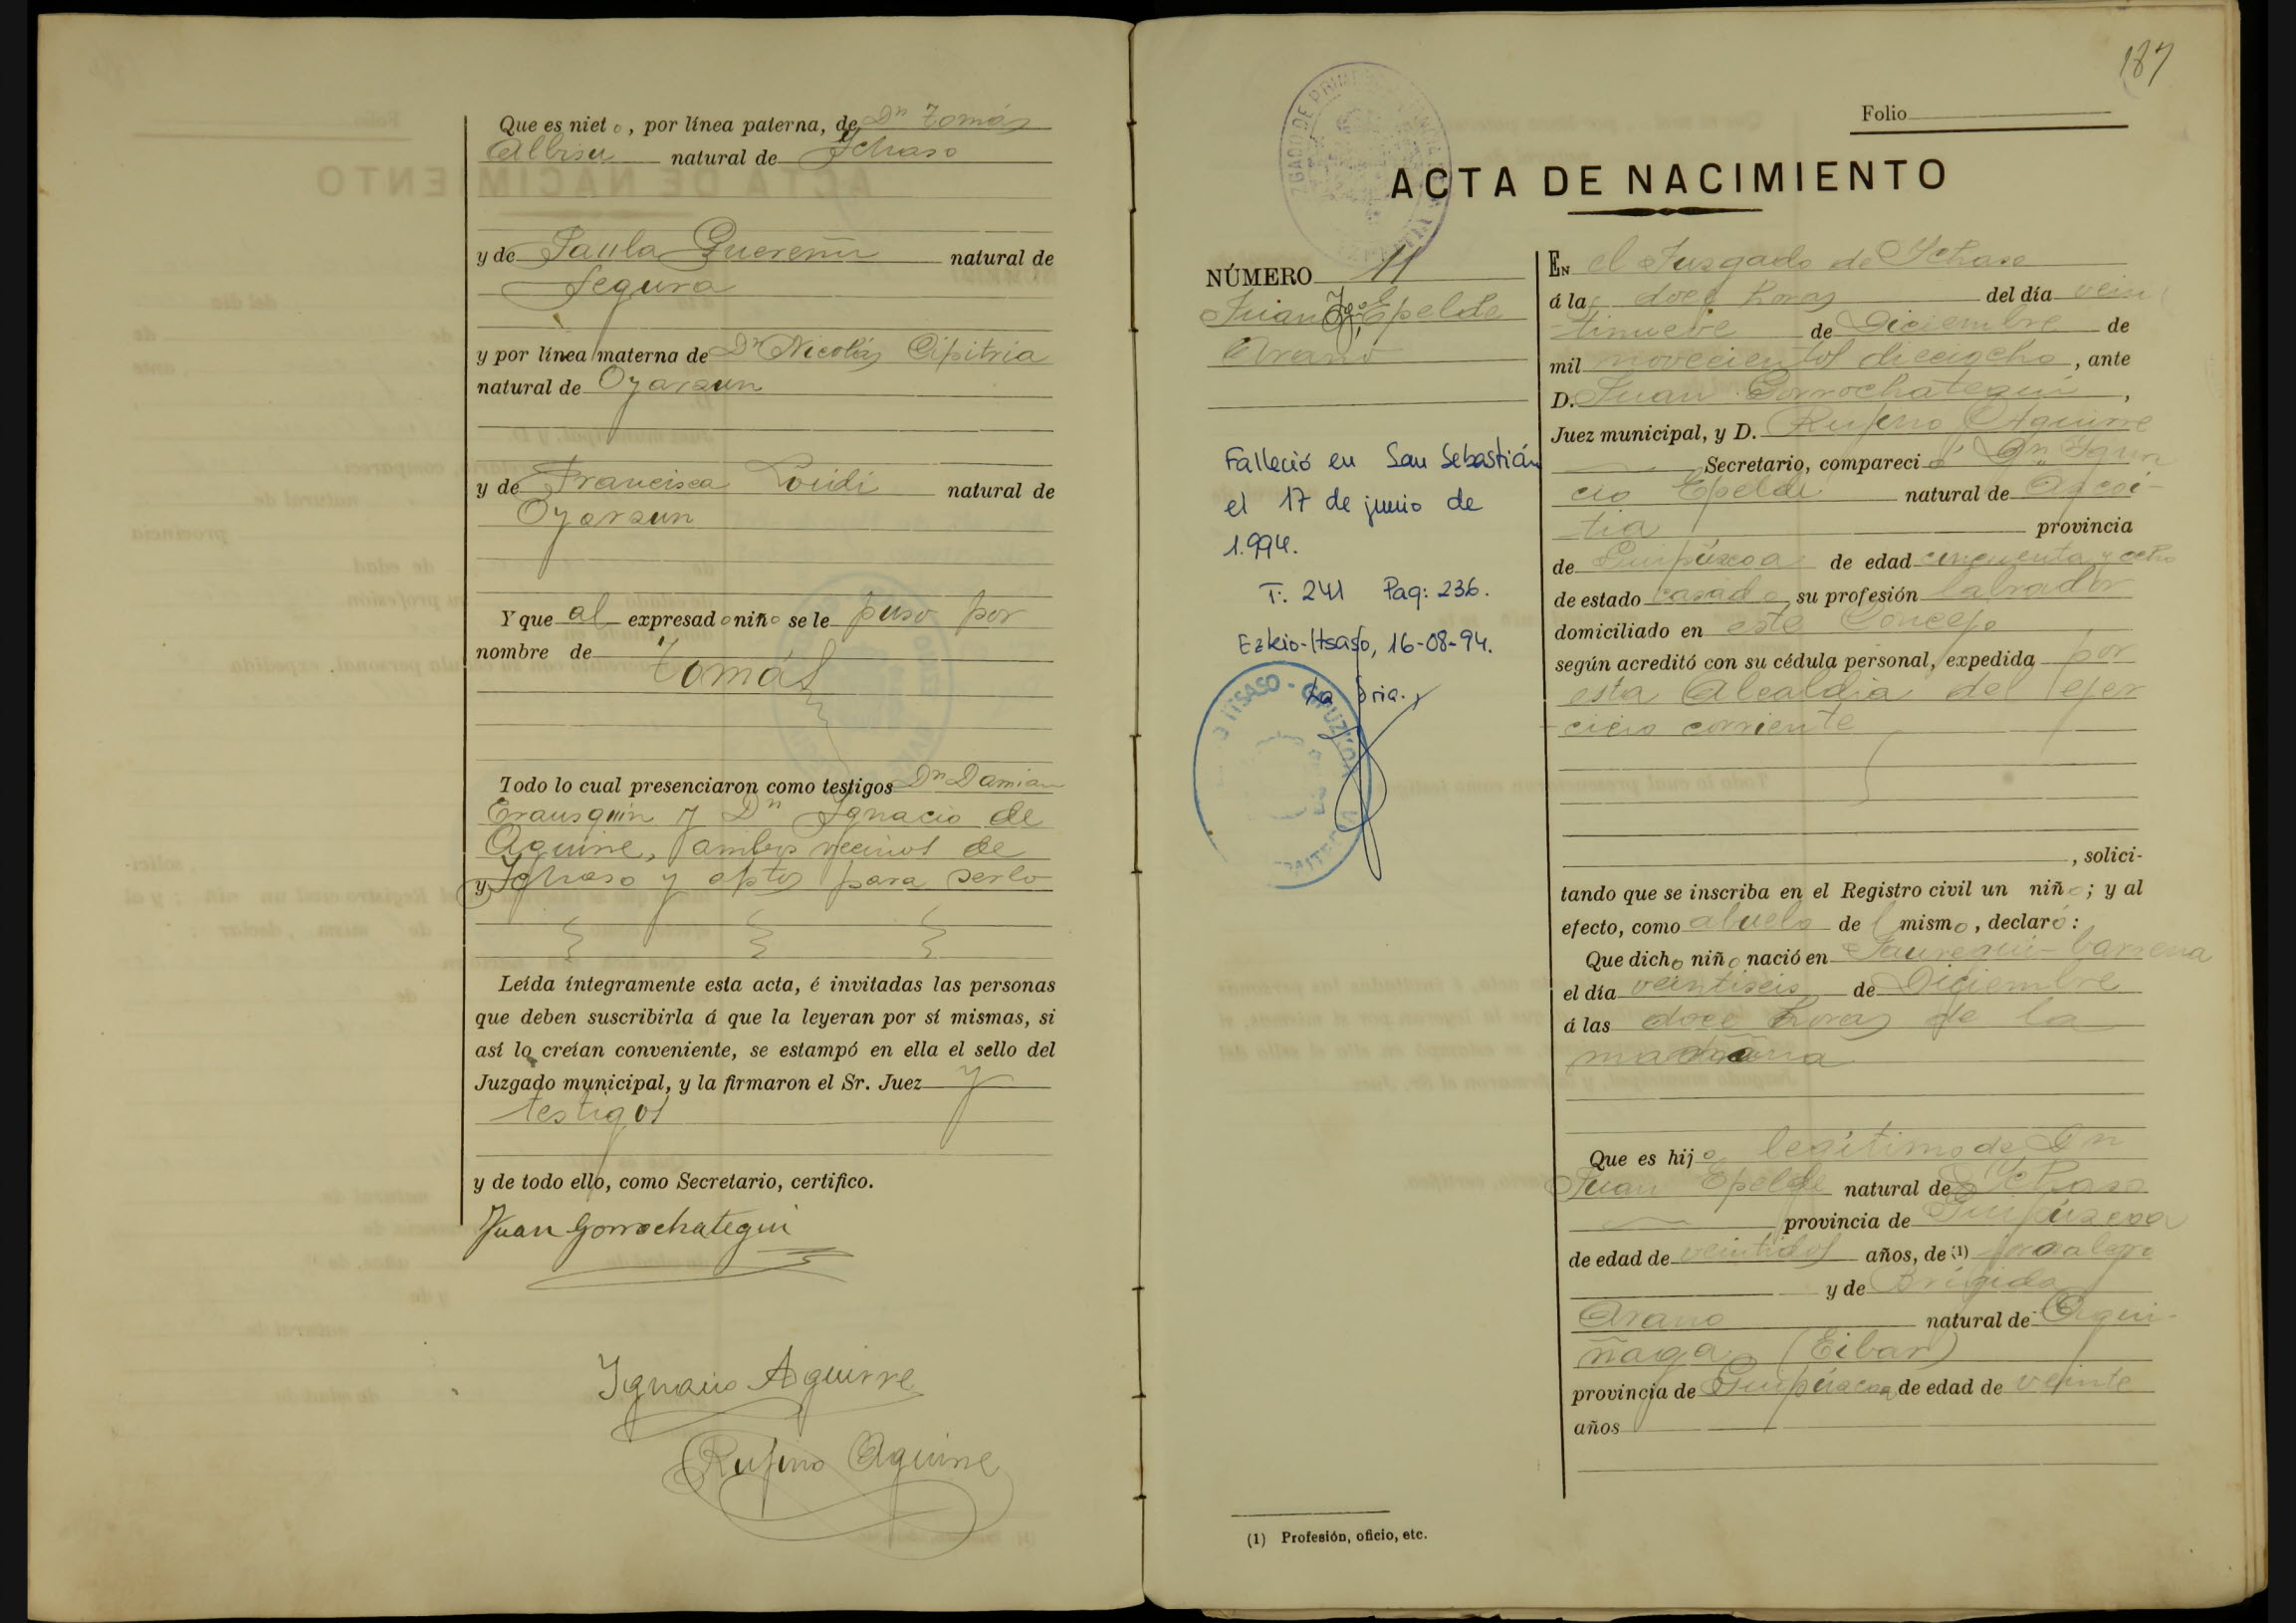 Que es nieto, por línea paterna, de Dn Tomás
Albisu natural de Ichaso
y de Paula Guereñu natural de
Segura
y por línea materna de Dn Nicolás Cipitria
natural de Oyarzun
y de Francisca Loidi natural de
Oyarzun
Y que al expresado niño se le puso por
nombre de
Tomás
Todo lo cual presenciaron como testigos Dn Damian
Erausquin y Dn Ignacio de
Aguirre, ambos vecinos de
y Ichaso y aptos para serlo
Leída íntegramente esta acta, é invitadas las personas
que deben suscribirla á que la leyeran por sí mismas, si
así lo creían conveniente, se estampó en ella el sello del
Juzgado municipal, y la firmaron el Sr. Juez y
testigos
y de todo ello, como Secretario, certifico.
Juan Gorrochategui
Ignacio Aguirre
Rufino Aguirre
187
Folio
ACTA DE NACIMIENTO
NÚMERO 11
Juan Igo Epelde
Arano
Falleció en San Sebastián
el 17 de junio de
1.994.
T: 241 Pag: 236.
Ezkio-Itsaso, 16-08-94.
La Sria.
EN el Juzgado de Ichaso
á las doce horas del día vein
tinueve de Diciembre de
mil novecientos dieciocho, ante
D. Juan Gorrochategui,
Juez municipal, y D. Rufino Aguirre
Secretario, compareció Dn Igna
cio Epelde natural de Azcoi-
tia provincia
de Guipúzcoa de edad cincuenta y ocho
de estado casado, su profesión labrador
domiciliado en este Concejo
según acreditó con su cédula personal, expedida por
esta Alcaldia del ejer
cicio corriente
, solici-
tando que se inscriba en el Registro civil un niño; y al
efecto, como abuelo del mismo, declaró:
Que dicho niño nació en Jauregui-barrena
el día veintiseis de Diciembre
á las doce horas de la
mañana
Que es hijo legítimo de Dn
Juan Epelde natural de Ichaso
provincia de Guipúzcoa
de edad de veintidos años, de (1) jornalero
y de Brigida
Arano natural de Agui-
ñaga (Eibar)
provincia de Guipúzcoa de edad de veinte
años
(1) Profesión, oficio, etc.